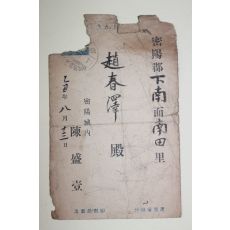 密陽郡下南面南田里
趙春澤 殿
密陽城內
陳盛壹
乙亥年 八月 十三日